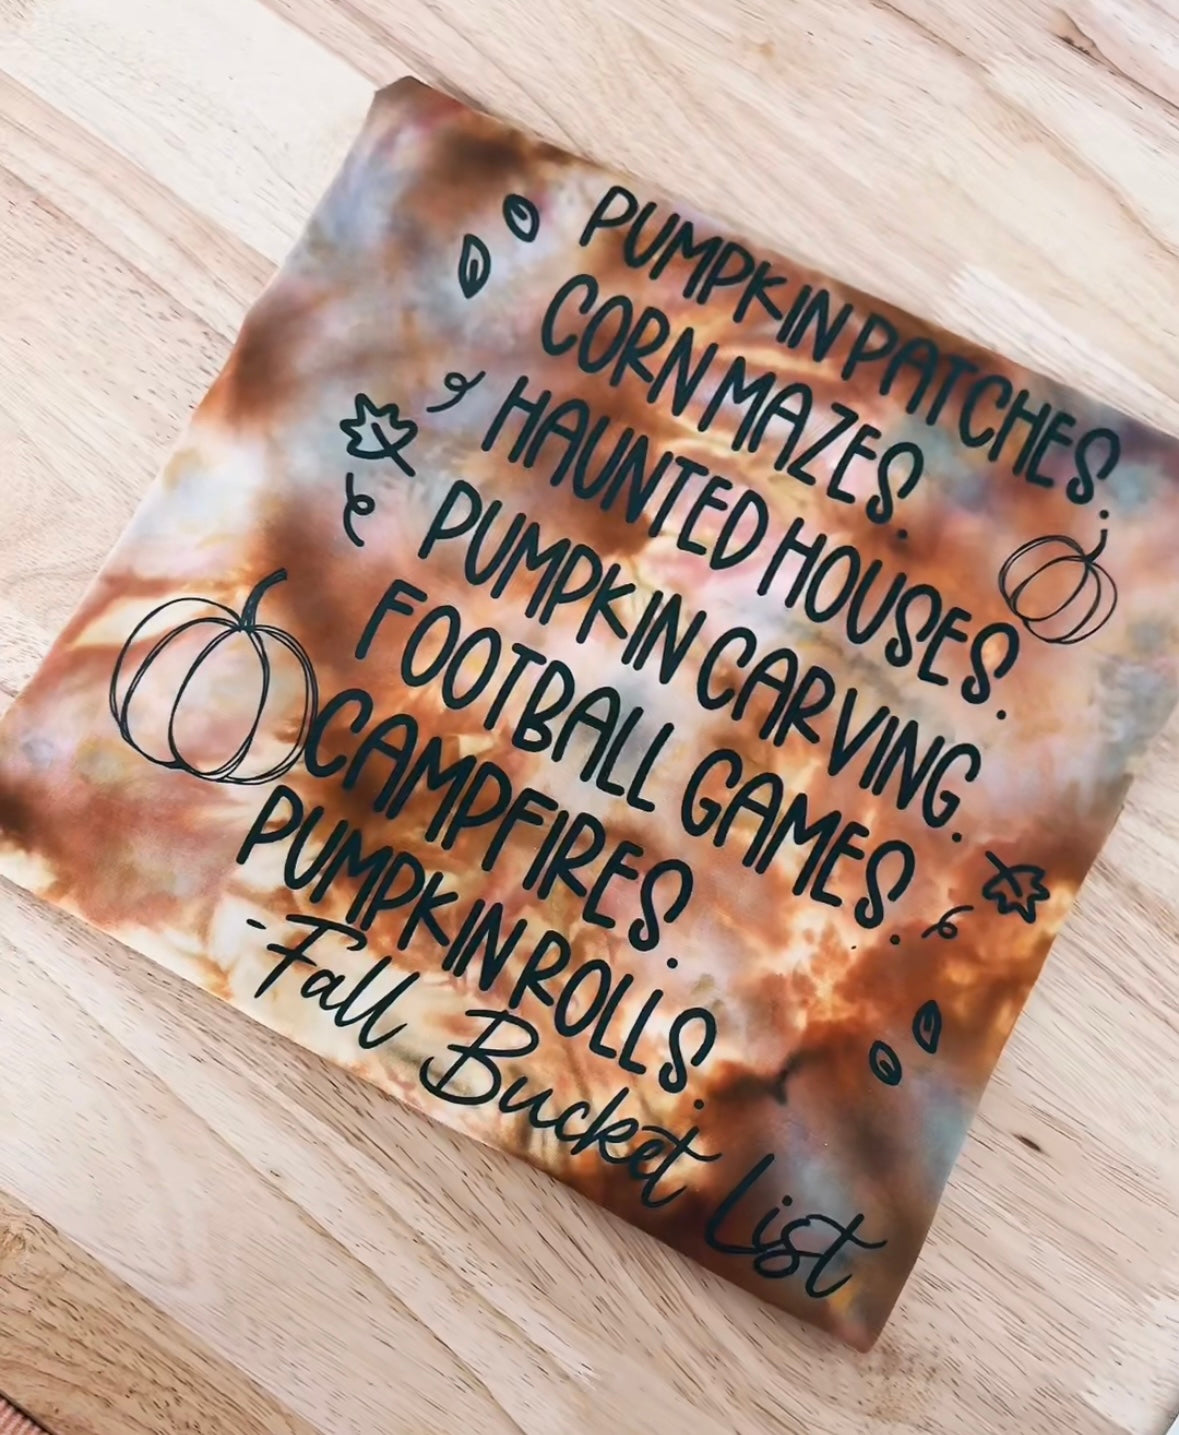 PUMPKIN PATCHES.
CORN MAZES.
HAUNTED HOUSES.
PUMPKIN CARVING.
FOOTBALL GAMES.
CAMPFIRES.
PUMPKIN ROLLS.
-Fall Bucket List